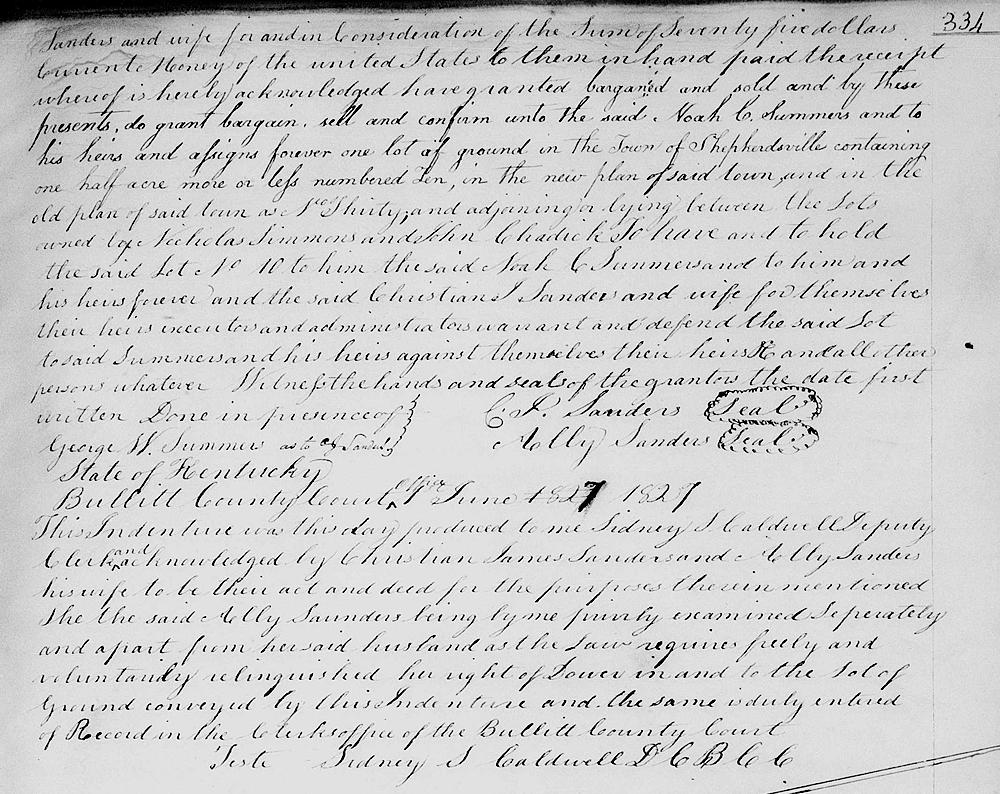 334
Sanders and wife for and in Consideration of the Sum of Seventy five dollars
Current Money of the united States to them in hand paid the receipt
whereof is hereby acknowledged have granted barganed and sold and by these
presents, do grant bargain, sell and confirm unto the said Noah C. Summers and to
his heirs and assigns forever one lot of ground in the Town of Shepherdsville containing
one half acre more or less numbered Ten, in the new plan of said town, and in the
old plan of said town as No Thirty, and adjoining or lying between the Lots
owned by Nicholas Simmons and John Chadick To have and to hold
the said Lot No 10 to him the said Noah C Summers and to him and
his heirs forever and the said Christian J Sanders and wife for themselves
their heirs executors and administrators warrant and defend the said Lot
to said Summers and his heirs against themselves their heirs & and all other
persons whatever Witness the hands and seals of the grantors the date first
written Done in presince of } C. J. Sanders Seal
George W. Summer as to CJ Sanders } Ally Sanders Seal
State of Kentucky
Bullitt County Court Office June 1827 1827
This Indenture was this day produced to me Sidney S. Caldwell Deputy
Clerk and acknowledged by Christian James Sanders and Ally Sanders
his wife to be their act and deed for the purposes therein mentioned
She the said Ally Saunders being by me privily examined Seperately
and apart from her said husband as the Law requires freely and
voluntarily relinquished her right of Dower in and to the Lot of
Ground conveyed by this Indenture and the same is duly entered
of Record in the Clerks office of the Bullitt County Court
Teste Sidney S Caldwell D C B C C